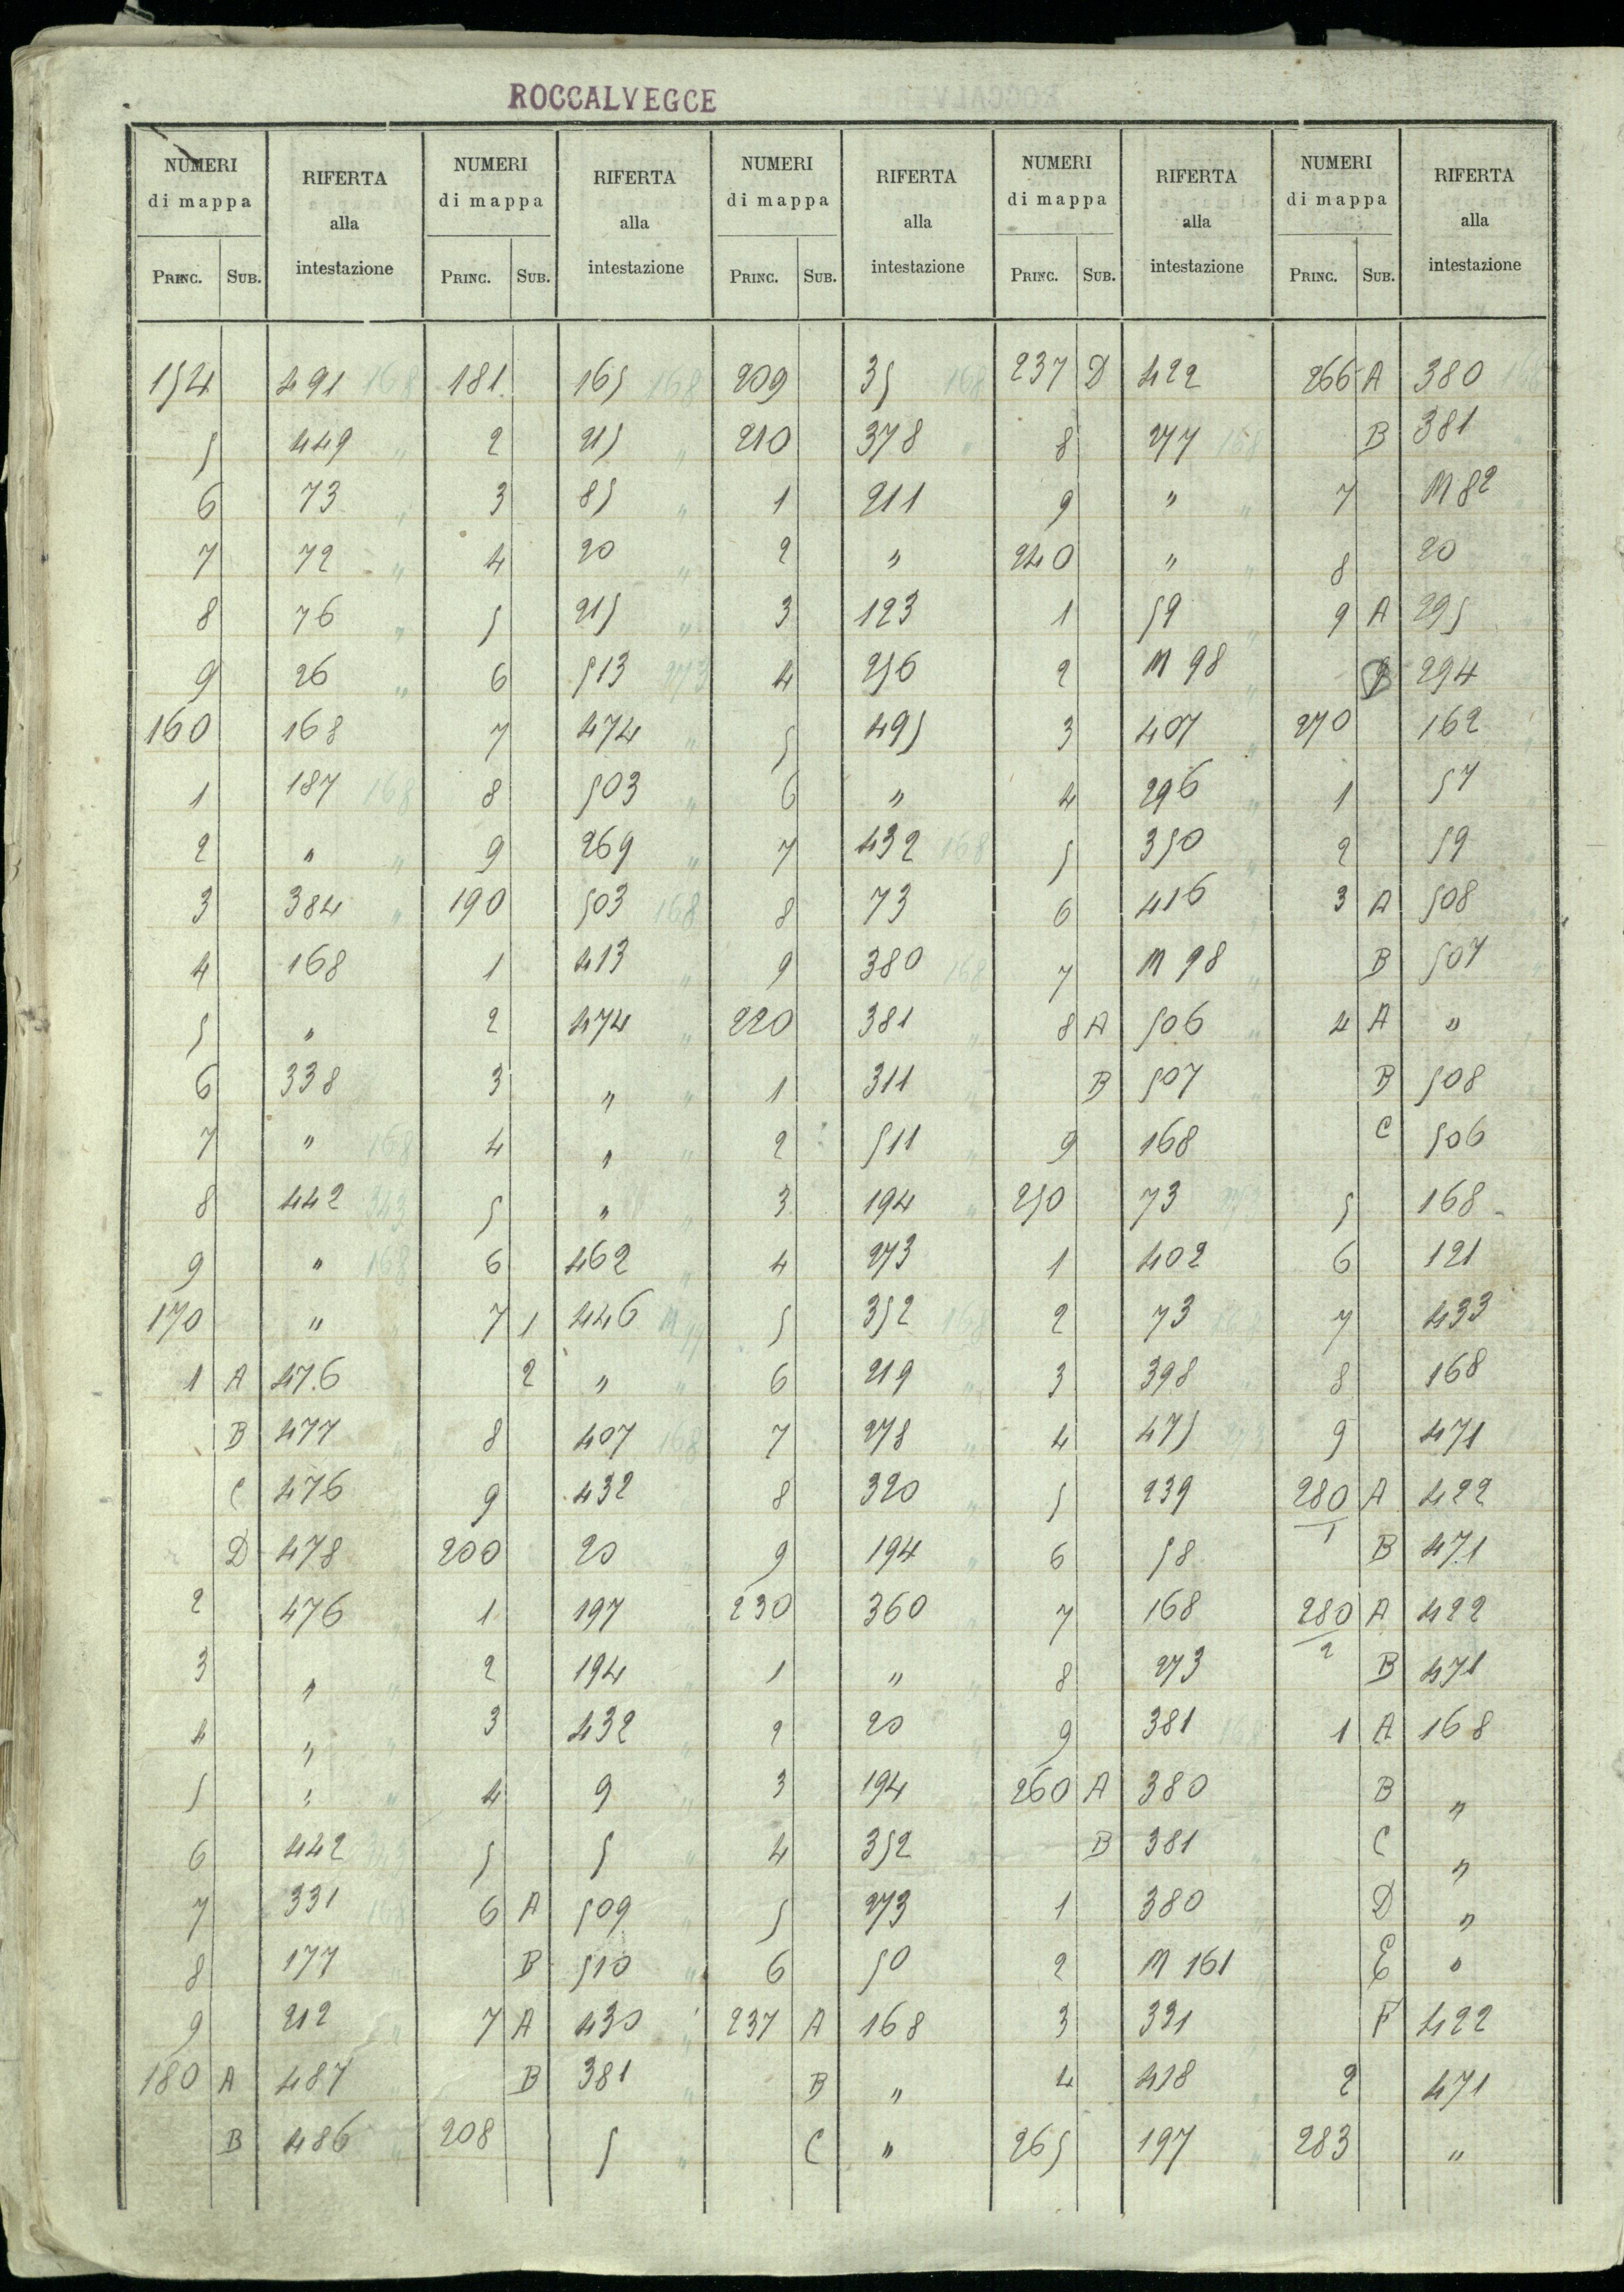 ROCCALVEGCE
NUMERI di mappa RIFERTA alla intestazione NUMERI di mappa RIFERTA alla intestazione NUMERI di mappa RIFERTA alla intestazione NUMERI di mappa RIFERTA alla intestazione NUMERI di mappa RIFERTA alla intestazione
PRINC. SUB. PRINC. SUB. PRINC. SUB. PRINC. SUB. PRINC. SUB.
154 491 168 181 165 168 209 35 168 237 D 422 266 A 380 168
5 449 " 2 215 " 210 378 " 8 277 168 B 381
6 73 " 3 85 " 1 211 9 " " 7 M 82
7 72 " 4 20 " 2 " 240 " " 8 20
8 76 " 5 215 " 3 123 1 59 " 9 A 295
9 26 " 6 513 273 4 256 2 M 98 " B 294
160 168 7 474 " 5 495 3 407 " 270 162
1 187 168 8 503 " 6 " 4 296 " 1 57
2 " " 9 269 " 7 432 168 5 350 " 2 59
3 384 " 190 503 168 8 73 6 416 3 A 508
4 168 1 413 " 9 380 168 7 M 98 " B 507
5 " 2 474 " 220 381 " 8 A 506 " 4 A "
6 338 3 " " 1 311 " B 507 " B 508
7 " 168 4 " " 2 511 " 9 168 C 506
8 442 343 5 " " 3 194 " 250 73 273 5 168
9 " 168 6 462 " 4 273 1 402 6 121
170 " " 7 1 446 M 5 352 168 2 73 168 7 433
1 A 476 2 " " 6 219 " 3 398 " 8 168
B 477 " 8 407 168 7 278 " 4 475 273 9 471
C 476 " 9 432 8 320 " 5 239 280/1 A 422
D 478 200 20 9 194 " 6 58 B 471
2 476 " 1 197 230 360 " 7 168 280/2 A 422
3 " " 2 194 1 " " 8 273 B 471
4 " " 3 432 " 2 20 " 9 381 168 1 A 168
5 " " 4 9 " 3 194 260 A 380 B "
6 442 343 5 5 " 4 352 B 381 " C "
7 331 168 6 A 509 " 5 273 1 380 " D "
8 177 " B 510 " 6 50 2 M 161 " E "
9 212 " 7 A 430 " 237 A 168 3 331 F 422
180 A 487 " B 381 " B " 4 428 " 2 471
B 486 " 208 5 " C " 265 197 " 283 "